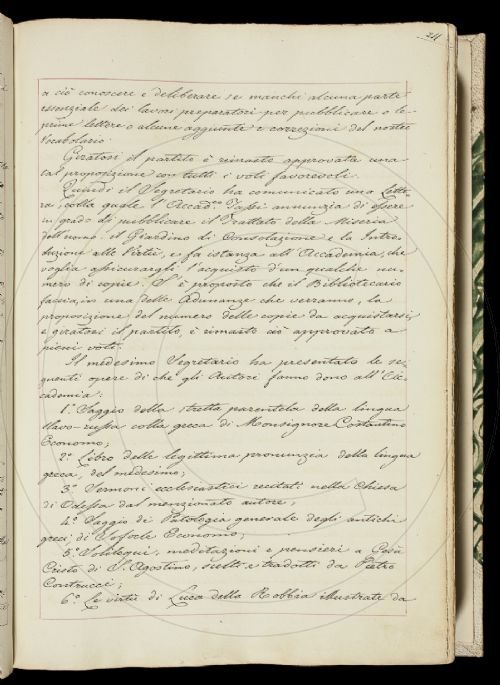 211
a ciò conoscere e deliberare se manchi alcuna parte
essenziale dei lavori preparatori per pubblicare o le
prime lettere o alcune aggiunte e correzioni del nostro
Vocabolario.
Giratosi il partito è rimasto approvata una
tal proposizione con tutti i voti favorevoli.
Quindi il Segretario ha comunicato una Lette-
ra, colla quale l'Accad.co Tassi annunzia di essere
in grado di pubblicare il Trattato della Miseria
dell'uomo, il Giardino di Consolazione e la Intro-
duzione alle Virtù, e fa istanza all'Accademia, che
voglia assicurargli l'acquisto d'un qualche nu-
mero di copie. S'è proposto che il Bibliotecario
faccia, in una delle Adunanze che verranno, la
proposizione del numero delle copie da acquistarsi,
e giratosi il partito, è rimasto ciò approvato a
pieni voti.
Il medesimo Segretario ha presentato le se-
guenti opere di che gli Autori fanno dono all'Ac-
cademia:
1.° Saggio della stretta parentela della lingua
slavo-russa colla greca di Monsignore Costantino
Economo;
2.° Libro della legittima pronunzia della lingua
greca, del medesimo;
3.° Sermoni ecclesiastici recitati nella Chiesa
di Odessa dal menzionato autore;
4.° Saggio di Patologia generale degli antichi
greci, di Sofocle Economo;
5.° Soliloqui, meditazioni e pensieri a Gesù
Cristo di S. Agostino, scelti e tradotti da Pietro
Contrucci;
6.° Le virtù di Luca della Robbia illustrate da